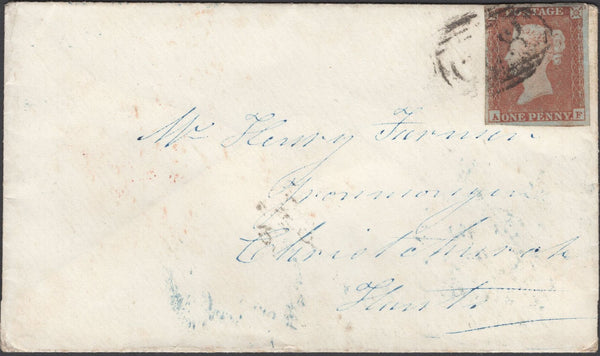 POSTAGE
A ONE PENNY F
Mr Henry Farmer
Ironmonger
Christchurch
Hants